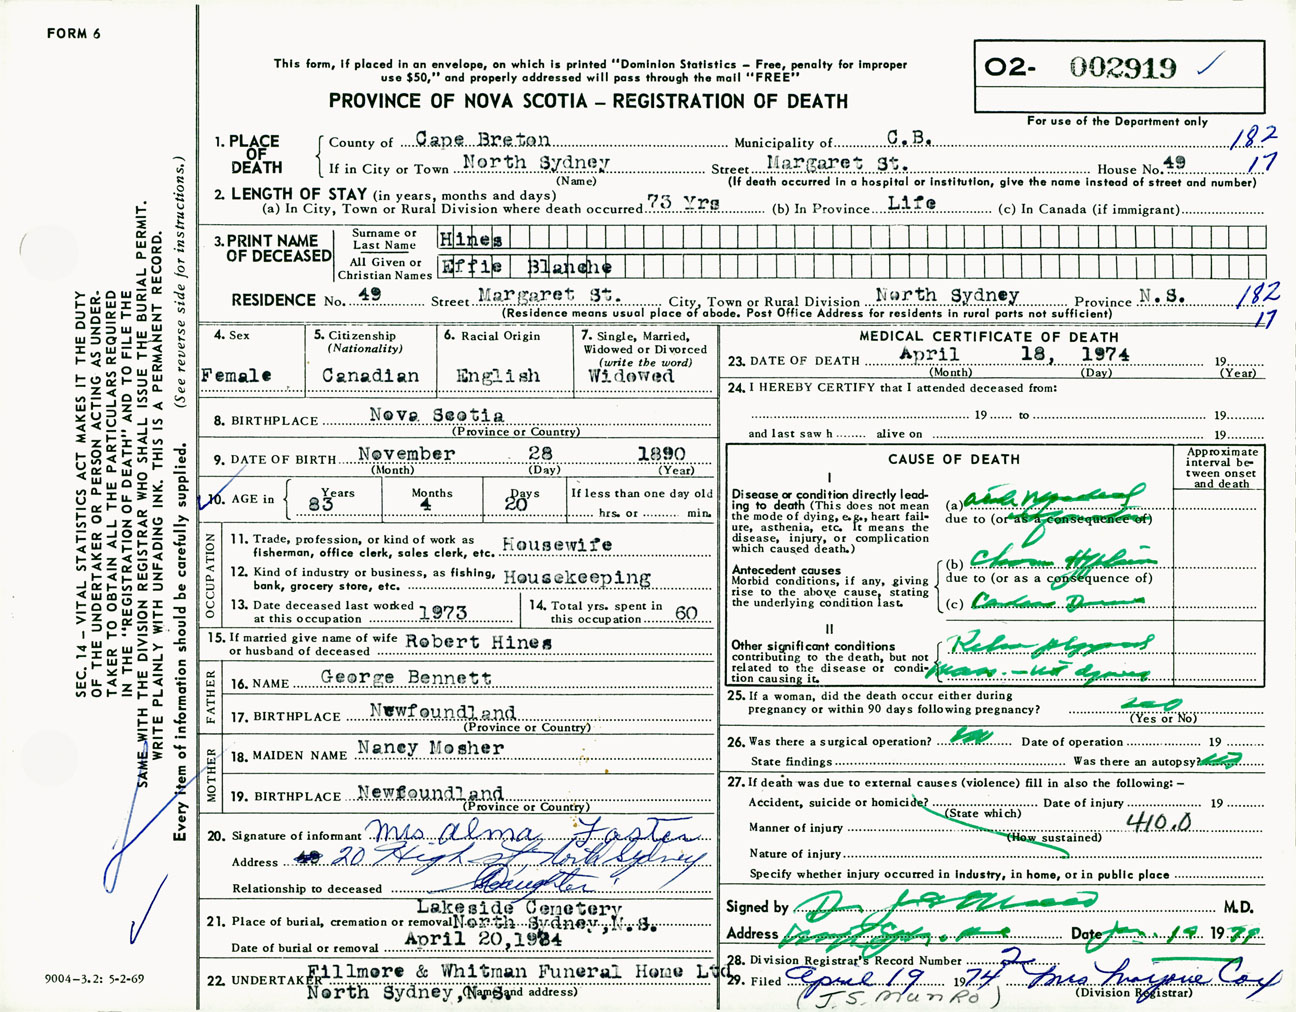 FORM 6
This form, if placed in an envelope, on which is printed "Dominion Statistics – Free, penalty for improper
use $50," and properly addressed will pass through the mail "FREE"
PROVINCE OF NOVA SCOTIA – REGISTRATION OF DEATH
02- 002919
For use of the Department only
SEC. 14 – VITAL STATISTICS ACT MAKES IT THE DUTY
OF THE UNDERTAKER OR PERSON ACTING AS UNDER-
TAKER TO OBTAIN ALL THE PARTICULARS REQUIRED
IN THE "REGISTRATION OF DEATH" AND TO FILE THE
SAME WITH THE DIVISION REGISTRAR WHO SHALL ISSUE THE BURIAL PERMIT.
WRITE PLAINLY WITH UNFADING INK. THIS IS A PERMANENT RECORD.
Every item of information should be carefully supplied. (See reverse side for instructions.)
1. PLACE OF DEATH
County of Cape Breton Municipality of C.B. 182
If in City or Town North Sydney Street Margaret St. House No. 49 17
(Name) (If death occurred in a hospital or institution, give the name instead of street and number)
2. LENGTH OF STAY (in years, months and days)
(a) In City, Town or Rural Division where death occurred 73 Yrs (b) In Province Life (c) In Canada (if immigrant)
3. PRINT NAME OF DECEASED
Surname or Last Name Hines
All Given or Christian Names Effie Blanche
RESIDENCE No. 49 Street Margaret St. City, Town or Rural Division North Sydney Province N.S. 182
(Residence means usual place of abode. Post Office Address for residents in rural parts not sufficient) 17
4. Sex
Female
5. Citizenship
(Nationality)
Canadian
6. Racial Origin
English
7. Single, Married,
Widowed or Divorced
(write the word)
Widowed
8. BIRTHPLACE Nova Scotia
(Province or Country)
9. DATE OF BIRTH November 28 1890
(Month) (Day) (Year)
10. AGE in
Years 83
Months 4
Days 20
If less than one day old
hrs. or min.
OCCUPATION
11. Trade, profession, or kind of work as
fisherman, office clerk, sales clerk, etc. Housewife
12. Kind of industry or business, as fishing,
bank, grocery store, etc. Housekeeping
13. Date deceased last worked
at this occupation 1973
14. Total yrs. spent in
this occupation 60
15. If married give name of wife
or husband of deceased Robert Hines
FATHER
16. NAME George Bennett
17. BIRTHPLACE Newfoundland
(Province or Country)
MOTHER
18. MAIDEN NAME Nancy Mosher
19. BIRTHPLACE Newfoundland
(Province or Country)
20. Signature of informant Mrs Alma Foster
Address 20 High St North Sydney
Relationship to deceased Daughter
Lakeside Cemetery
21. Place of burial, cremation or removal North Sydney, N.S.
Date of burial or removal April 20, 1974
22. UNDERTAKER Fillmore & Whitman Funeral Home Ltd
North Sydney, N.S.
(Name and address)
MEDICAL CERTIFICATE OF DEATH
23. DATE OF DEATH April 18, 1974 19
(Month) (Day) (Year)
24. I HEREBY CERTIFY that I attended deceased from:
19 to 19
and last saw h alive on 19
CAUSE OF DEATH
Approximate
interval be-
tween onset
and death
I
Disease or condition directly lead-
ing to death (This does not mean
the mode of dying, e.g., heart fail-
ure, asthenia, etc. It means the
disease, injury, or complication
which caused death.)
(a)
due to (or as a consequence of)
Antecedent causes
Morbid conditions, if any, giving
rise to the above cause, stating
the underlying condition last.
(b)
due to (or as a consequence of)
(c)
II
Other significant conditions
contributing to the death, but not
related to the disease or condi-
tion causing it.
25. If a woman, did the death occur either during
pregnancy or within 90 days following pregnancy? no
(Yes or No)
26. Was there a surgical operation? no Date of operation 19
State findings Was there an autopsy? no
27. If death was due to external causes (violence) fill in also the following: –
Accident, suicide or homicide? Date of injury 19
(State which)
Manner of injury 410.0
(How sustained)
Nature of injury
Specify whether injury occurred in industry, in home, or in public place
Signed by Dr. M.D.
Address Date 19 19
28. Division Registrar's Record Number
29. Filed April 19 1974 Mrs Marjorie Cox
(J.S. MUNRO) (Division Registrar)
9004-3.2: 5-2-69